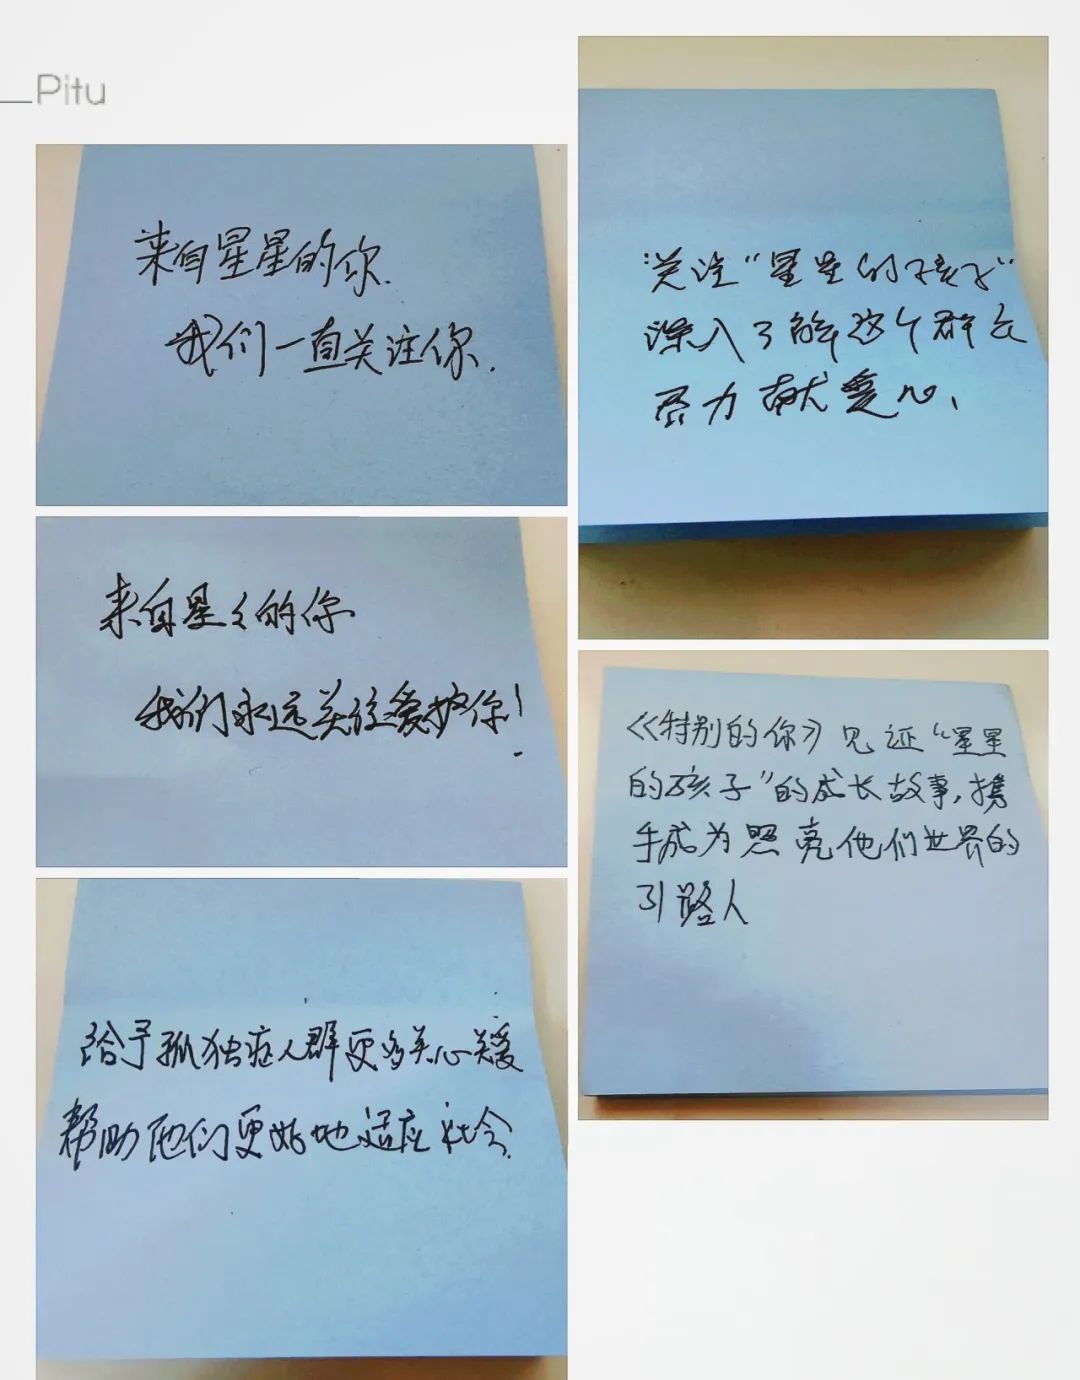 Pitu
来自星星的你.
我们一直关注你.
来自星々的你
我们永远关注爱护你！
给予孤独症人群更多关心关爱
帮助他们更好地适应社会.
关注“星星的孩子”
深入了解这个群众
尽力献爱心、
《特别的你》见证“星星
的孩子”的成长故事,携
手成为照亮他们世界的
引路人